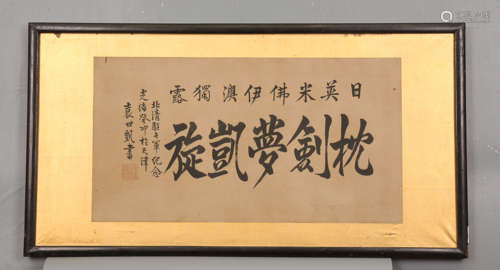 日英米佛伊澳獨露
枕劍夢凱旋
北清聯合軍紀念
光緒癸卯於天津
袁世凱書